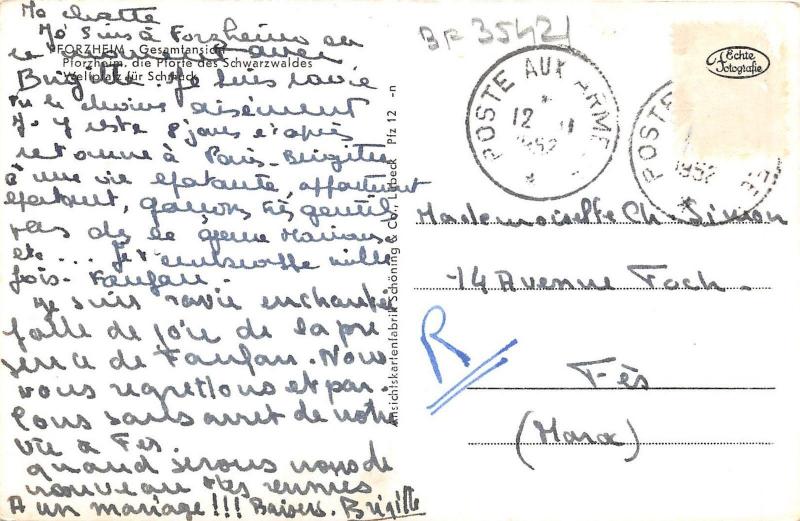 Ma chatte
Je suis à Forzheim en
ce moment avec
PFORZHEIM - Gesamtansicht
Pforzheim, die Pforte des Schwarzwaldes
Weltplatz für Schmuck
Brigitte. Je suis ravie
tu le devines aisément
J'y reste 8 jours et après
retourne à Paris. Brigitte
a une vie épatante, appartement
épatant, garçons très gentils
pas de
etc... Je t'embrasse mille
fois. Fanfan.
Je suis ravie enchantée
folle de joie de la pré
sence de Fanfan. Nous
vous regrettons et par-
lons sans arrêt de notre
vie à Fès.
quand serons nous de
nouveau réunies
A un mariage!!! Baisers. Brigitte
Ansichtskartenfabrik Schöning & Co., Lübeck Pfz 12 -n
BF 35421
POSTE AUX ARMÉES
12
1952
POSTE
1952
Echte
Fotografie
Mademoiselle Ch. Simon
14 Avenue Foch.
R
Fès
(Maroc)